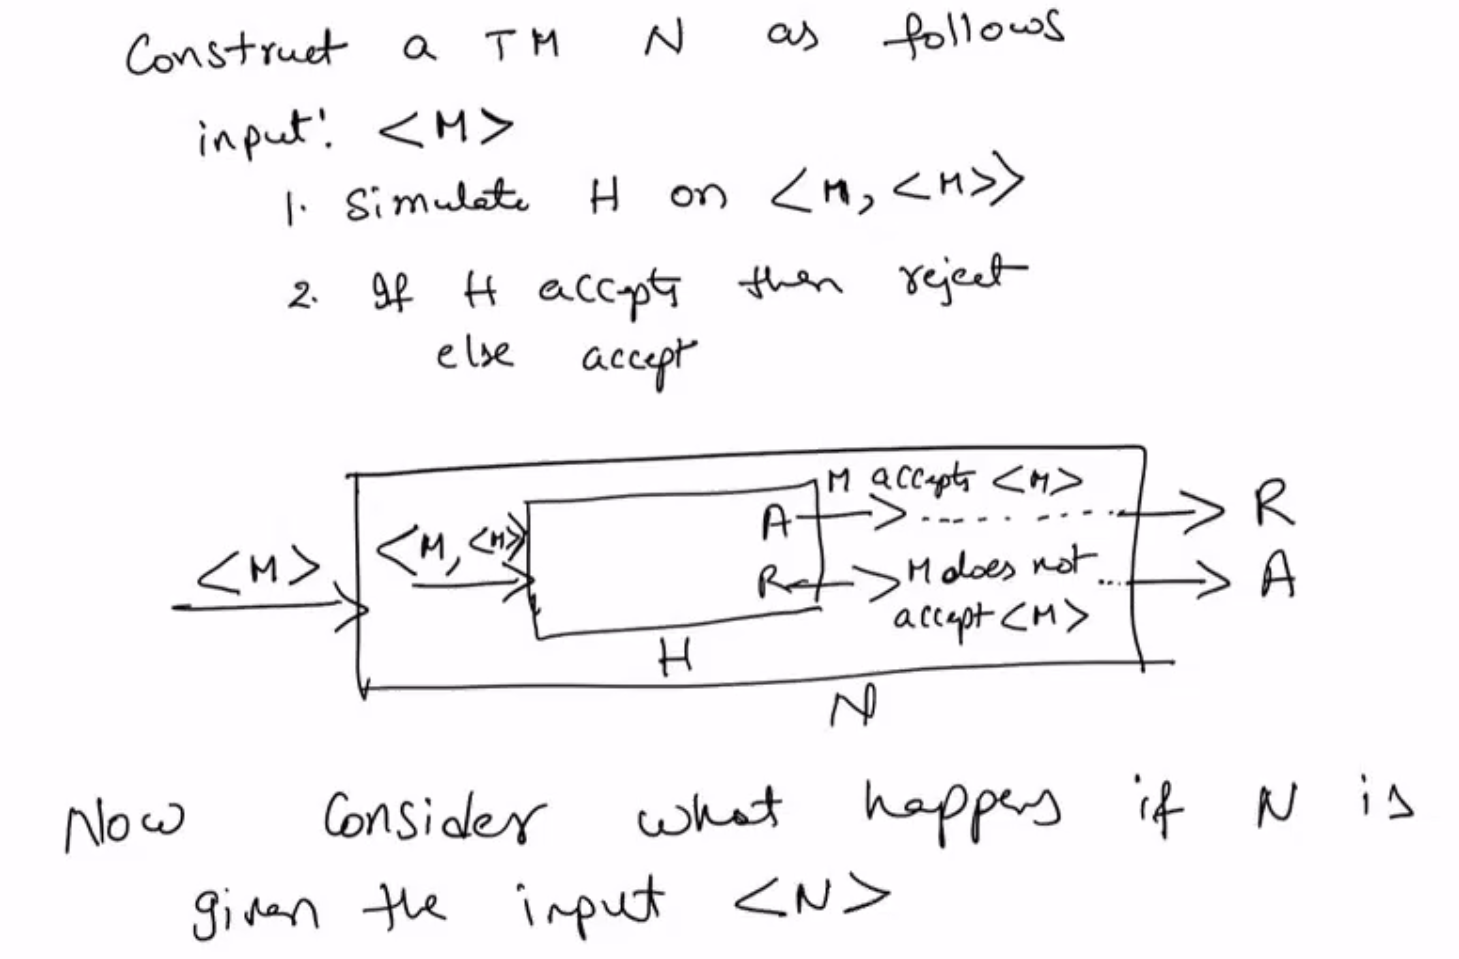 Construct a TM N as follows
input: <M>
1. Simulate H on <M, <M>>
2. If H accepts then reject
else accept
M accepts <M>
A
R
<M, <M>>
<M>
R
M does not
A
accept <M>
H
N
Now Consider what happens if N is
given the input <N>